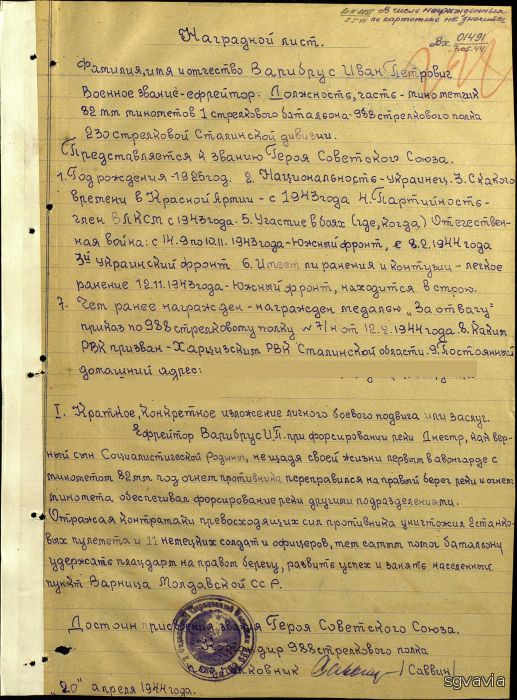 В числе награжденных
по картотеке не значится
Наградной лист.
Вх. 01491
7.05.44г.
Фамилия, имя и отчество Варибрус Иван Петрович
Военное звание-ефрейтор. Должность, часть-минометчик
82 мм минометов 1 стрелкового батальона 988 стрелкового полка
230 стрелковой Сталинской дивизии.
Представляется к званию Героя Советского Союза.
1. Год рождения-1925год. 2. Национальность-украинец. 3. С какого
времени в Красной Армии - с 1943 года 4. Партийность-
член ВЛКСМ с 1943 года. 5. Участие в боях (где, когда) Отечествен-
ная война: с 14.9 по 10.11. 1943 года-Южный фронт, с 8.2.1944 года
3й Украинский фронт 6. Имеет ли ранения и контузии - легкое
ранение 12.11.1943 года-Южный фронт, находится в строю.
7. Чем ранее награжден - награжден медалью „За отвагу"
приказ по 988 стрелковому полку №7/н от 12.2.1944 года. 8. Каким
РВК призван - Харцизским РВК Сталинской области. 9. Постоянный
домашний адрес:
I. Краткое, конкретное изложение личного боевого подвига или заслуг.
Ефрейтор Варибрус И.П. при форсировании реки Днестр, как вер-
ный сын Социалистической Родины, не щадя своей жизни первым в авангарде с
минометом 82мм под огнем противника переправился на правый берег реки и огнем
миномета обеспечивал форсирование реки другими подразделениями.
Отражая контратаки превосходящих сил противника уничтожил 2 станко-
вых пулемета и 11 немецких солдат и офицеров, тем самым помог батальону
удержать плацдарм на правом берегу, развить успех и занять населенный
пункт Варница Молдавской ССР.
Достоин присвоения звания Героя Советского Союза.
988 стрелкового полка
/Саввин/
„20" апреля 1944 года.
sgvavia